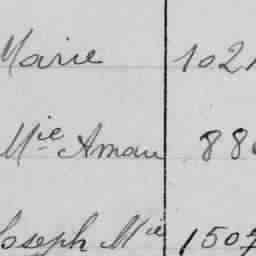 Marie 102
Mie Aman 88
Joseph Mie 1507